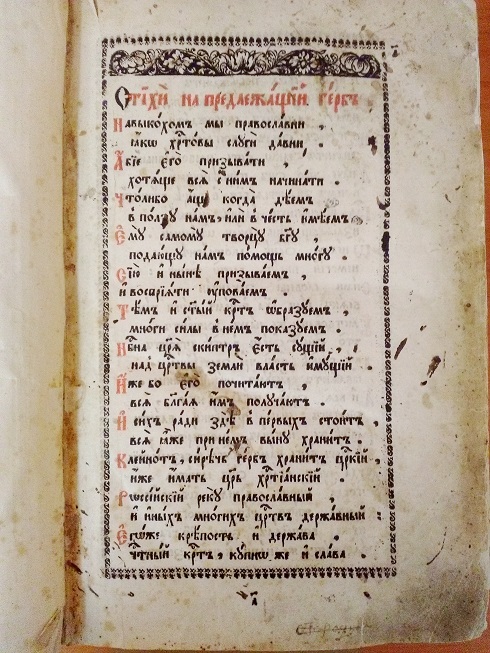 Стїхѝ на предлежа́щїй ге́рбъ.
Навыко́хомъ мы̀ правосла́внїи,
ꙗ́кѡ хрⷭ҇то́вы слꙋгѝ да́внїи.
А҆́бїе є҆го̀ призыва́ти,
хотѧ́ще всѧ̀ с ни́мъ начина́ти.
Что́либо а҆́ще когда̀ дѣ́емъ
в по́льзꙋ на́мъ, и҆лѝ в че́сть и҆мѣ́емъ.
Є҆мꙋ̀ самомꙋ̀ творцꙋ̀ бг҃ꙋ,
подаю́щꙋ на́мъ по́мощь мно́гꙋ.
Сїѐ и҆ ны́нѣ призыва́емъ,
и҆ воспрїѧ́ти ᲂу҆пова́емъ.
Тѣ́мъ и҆ ст҃ы́й крⷭ҇тъ ѡ҆бразꙋ́емъ,
мно́ги си́лы в не́мъ показꙋ́емъ.
Нбⷭ҇на цр҃ѧ̀ ски́птръ є҆́сть сꙋ́щїй,
над црⷭ҇твы землѝ вла́сть и҆мꙋ́щїй.
И҆̀же бо є҆го̀ почита́ютъ,
всѧ̑ блага́ѧ и҆́мъ полꙋча́ютъ.
И҆ си́хъ ра́ди здѣ̀ в пе́рвыхъ стои́тъ,
всѧ̑ ꙗ҆̀же при не́мъ вы́нꙋ храни́тъ.
Клейно́тъ, си́рѣчь ге́рбъ храни́тъ црⷭ҇кїй,
и҆́же и҆́мать цр҃ь хрⷭ҇тїа́нскїй.
Рѡссі́йскїй рекꙋ̀ правосла́вный,
и҆ и҆ны́хъ мно́гихъ црⷭ҇твъ держа́вный.
Є҆гѡ́же крѣ́пость и҆ держа́ва
чⷭ҇тны́й крⷭ҇тъ, кꙋ́пнѡ же и҆ сла́ва.